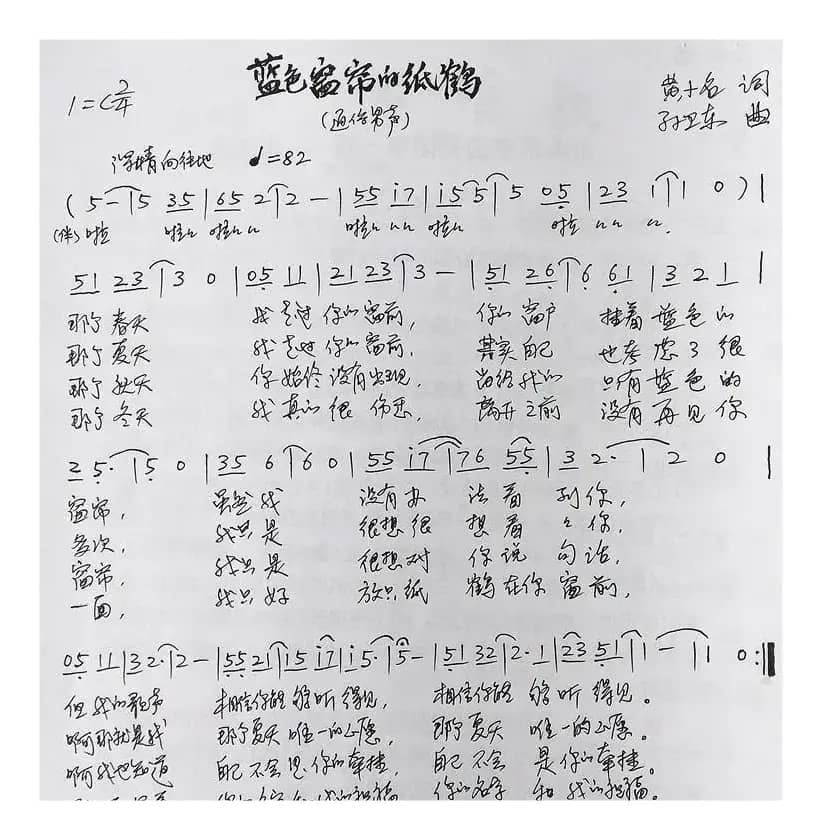 蓝色窗帘的纸鹤
1=C 2/4
(通俗男声)
黄十名 词
孙卫东 曲
深情向往地 ♩=82
( 5 - | 5 35 | 65 2 | 2 - | 55 i7 | i5 5 | 5 05 | 23 1 | 1 0 ) |
(伴) 啦 啦 啦 啦 啦 啦
51 23 | 3 0 | 05 11 | 21 23 | 3 - | 51 26 | 6 61 | 3 21 |
那个春天 我走过你的窗前, 你的窗户 挂着蓝色的
那个夏天 我走过你的窗前, 其实自己 也考虑了很
那个秋天 你始终没有出现, 留给我的 只有蓝色的
那个冬天 我真的很伤悲, 离开之前 没有再见你
2 5· | 5 0 | 35 6 | 6 0 | 55 i7 | 76 55 | 3 2· | 2 0 |
窗帘, 虽然我 没有办法看到你,
多次, 我只是 很想很想看看你,
窗帘, 我只是 很想对你说句话,
一面, 我只好 放只纸鹤在你窗前,
05 11 | 32· | 2 - | 55 21 | 15 i7 | i5· | 5 - | 51 32 | 2· 1 | 23 51 | 1 - | 1 0 :||
但我的歌声 相信你能够听得见, 相信你能够听得见。
啊那就是我 那个夏天唯一的心愿, 那个夏天唯一的心愿。
啊我也知道 自己不会是你的牵挂, 自己不会是你的牵挂。
你的名字和我的祝福。